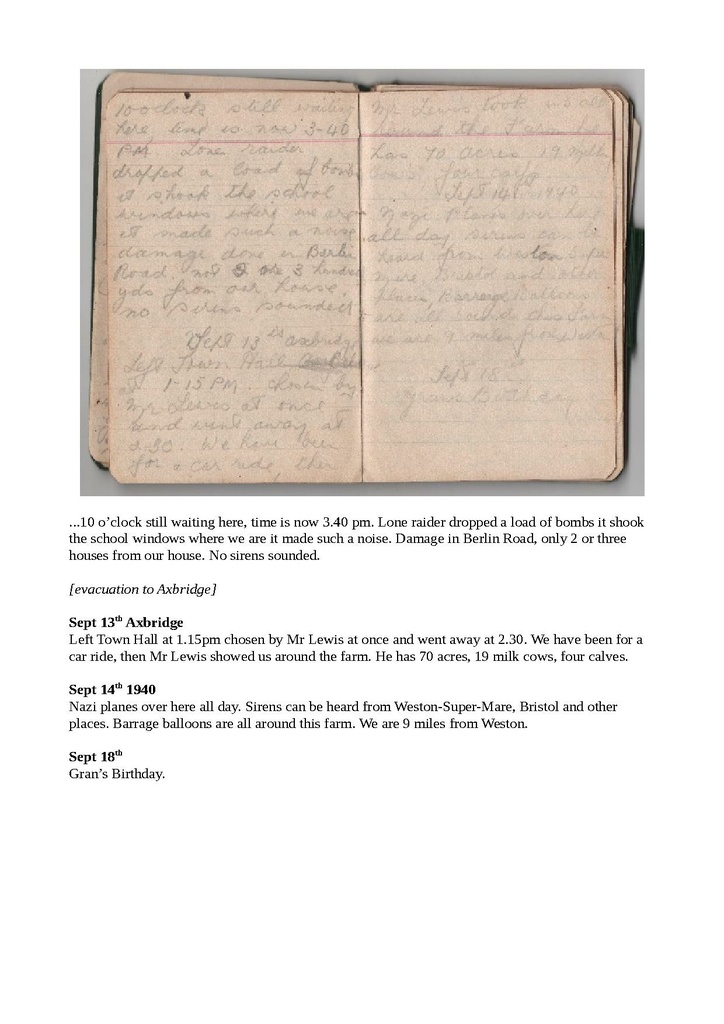 10 oclock still waiting
here, time is now 3-40
PM Lone raider
dropped a load of bombs
it shook the school
windows where we are
it made such a noise
damage done in Berlin
Road. not 2 or 3 hundred
yds from our house.
no sirens sounded
Sept 13 th axbridge
Left Town Hall
at 1-15 PM. chosen by
Mr Lewis at once
and went away at
2-30. We have been
for a car ride, then
Mr Lewis took us all
round the Farm he
has 70 acres 19 milk
cows four calfs
Sept 14th 1940
Nazi Planes over here
all day sirens can be
heard from Weston Super
mare, Bristol and other
places, Barrage Balloons
are all round this farm
we are 9 miles from Weston
Sept 18th
Grans Birthday
...10 o’clock still waiting here, time is now 3.40 pm. Lone raider dropped a load of bombs it shook
the school windows where we are it made such a noise. Damage in Berlin Road, only 2 or three
houses from our house. No sirens sounded.
[evacuation to Axbridge]
Sept 13th Axbridge
Left Town Hall at 1.15pm chosen by Mr Lewis at once and went away at 2.30. We have been for a
car ride, then Mr Lewis showed us around the farm. He has 70 acres, 19 milk cows, four calves.
Sept 14th 1940
Nazi planes over here all day. Sirens can be heard from Weston-Super-Mare, Bristol and other
places. Barrage balloons are all around this farm. We are 9 miles from Weston.
Sept 18th
Gran’s Birthday.